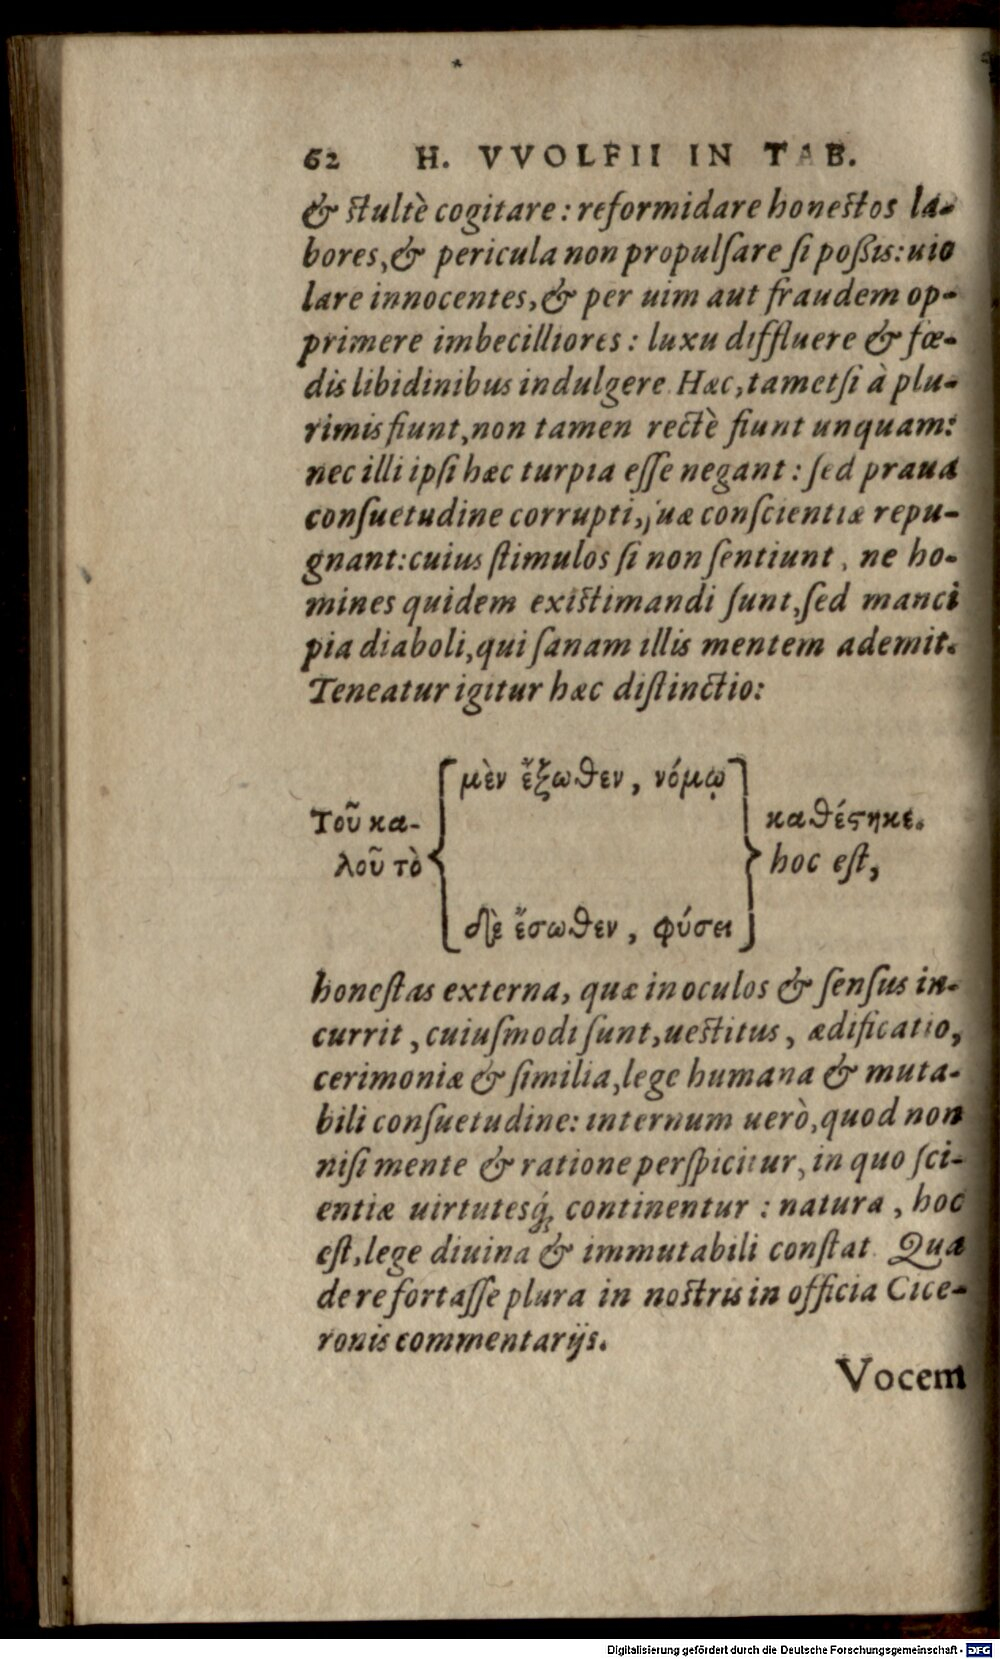 62 H. VVOLFII IN TAB.
& stultè cogitare: reformidare honestos la-
bores, & pericula non propulsare si poßis: uio
lare innocentes, & per uim aut fraudem op-
primere imbecilliores: luxu diffluere & fœ-
dis libidinibus indulgere. Hæc, tametsi à plu-
rimis fiunt, non tamen rectè fiunt unquam:
nec illi ipsi hæc turpia esse negant: sed praua
consuetudine corrupti, suæ conscientiæ repu-
gnant: cuius stimulos si non sentiunt, ne ho-
mines quidem existimandi sunt, sed manci
pia diaboli, qui sanam illis mentem ademit.
Teneatur igitur hæc distinctio:
μὲν ἔξωθεν, νόμῳ
Τοῦ κα-
λοῦ τὸ
καθέστηκε.
hoc est,
δὲ ἔσωθεν, φύσει
honestas externa, quæ in oculos & sensus in-
currit, cuiusmodi sunt, uestitus, ædificatio,
cerimoniæ & similia, lege humana & muta-
bili consuetudine: internum uerò, quod non
nisi mente & ratione perspicitur, in quo sci-
entiæ uirtutesq́; continentur: natura, hoc
est, lege diuina & immutabili constat. Qua
de re fortasse plura in nostris in officia Cice-
ronis commentarijs.
Vocem
Digitalisierung gefördert durch die Deutsche Forschungsgemeinschaft - DFG